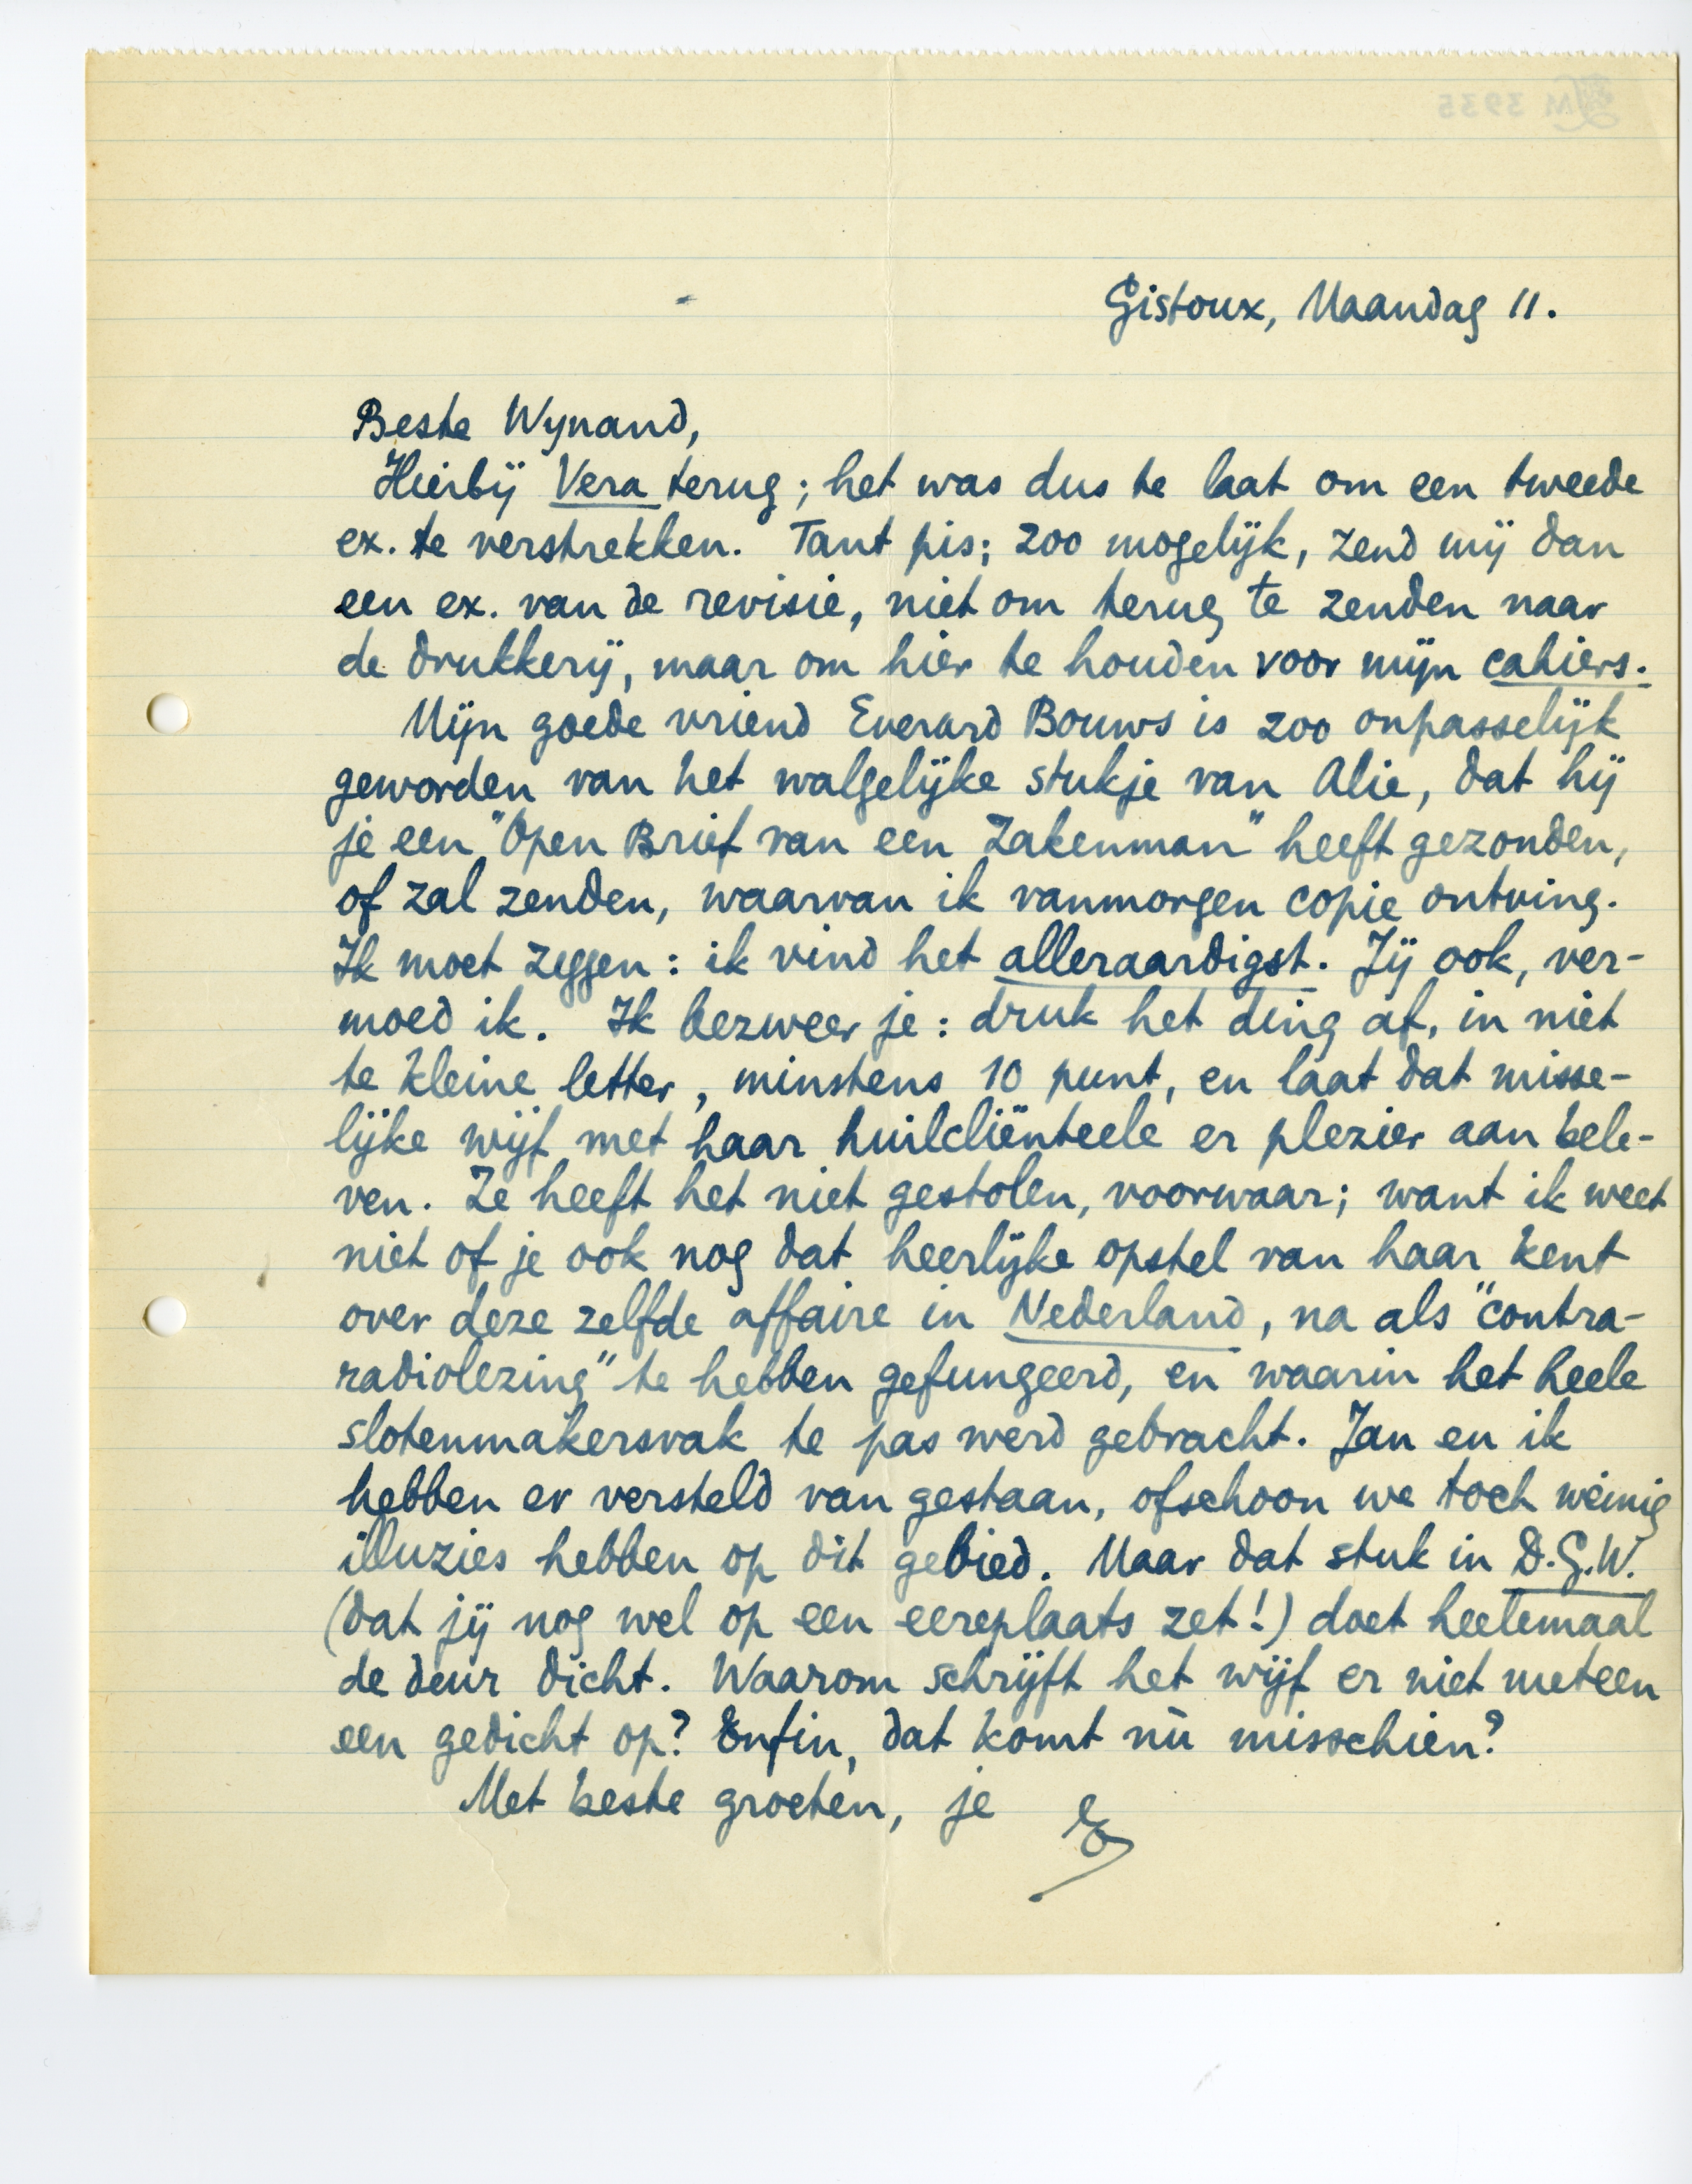 Gistoux, Maandag 11.
Beste Wynand,
Hierbij Vera terug; het was dus te laat om een tweede
ex. te verstrekken. Tant pis; zoo mogelijk, zend mij dan
een ex. van de revisie, niet om terug te zenden naar
de drukkerij, maar om hier te houden voor mijn cahiers.
Mijn goede vriend Everard Bouws is zoo onpasselijk
geworden van het walgelijke stukje van Alie, dat hij
je een "Open Brief van een Zakenman" heeft gezonden,
of zal zenden, waarvan ik vanmorgen copie ontving.
Ik moet zeggen: ik vind het alleraardigst. Jij ook, ver-
moed ik. Ik bezweer je: druk het ding af, in niet
te kleine letter, minstens 10 punt, en laat dat misse-
lijke wijf met haar huilcliënteele er plezier aan bele-
ven. Ze heeft het niet gestolen, voorwaar; want ik weet
niet of je ook nog dat heerlijke opstel van haar kent
over deze zelfde affaire in Nederland, na als "contra-
radiolezing" te hebben gefungeerd, en waarin het heele
slotenmakersvak te pas werd gebracht. Jan en ik
hebben er versteld van gestaan, ofschoon we toch weinig
illuzies hebben op dit gebied. Maar dat stuk in D.G.W.
(dat jij nog wel op een eereplaats zet!) doet heelemaal
de deur dicht. Waarom schrijft het wijf er niet meteen
een gedicht op? Enfin, dat komt nù misschien?
Met beste groeten, je E
LM 3935